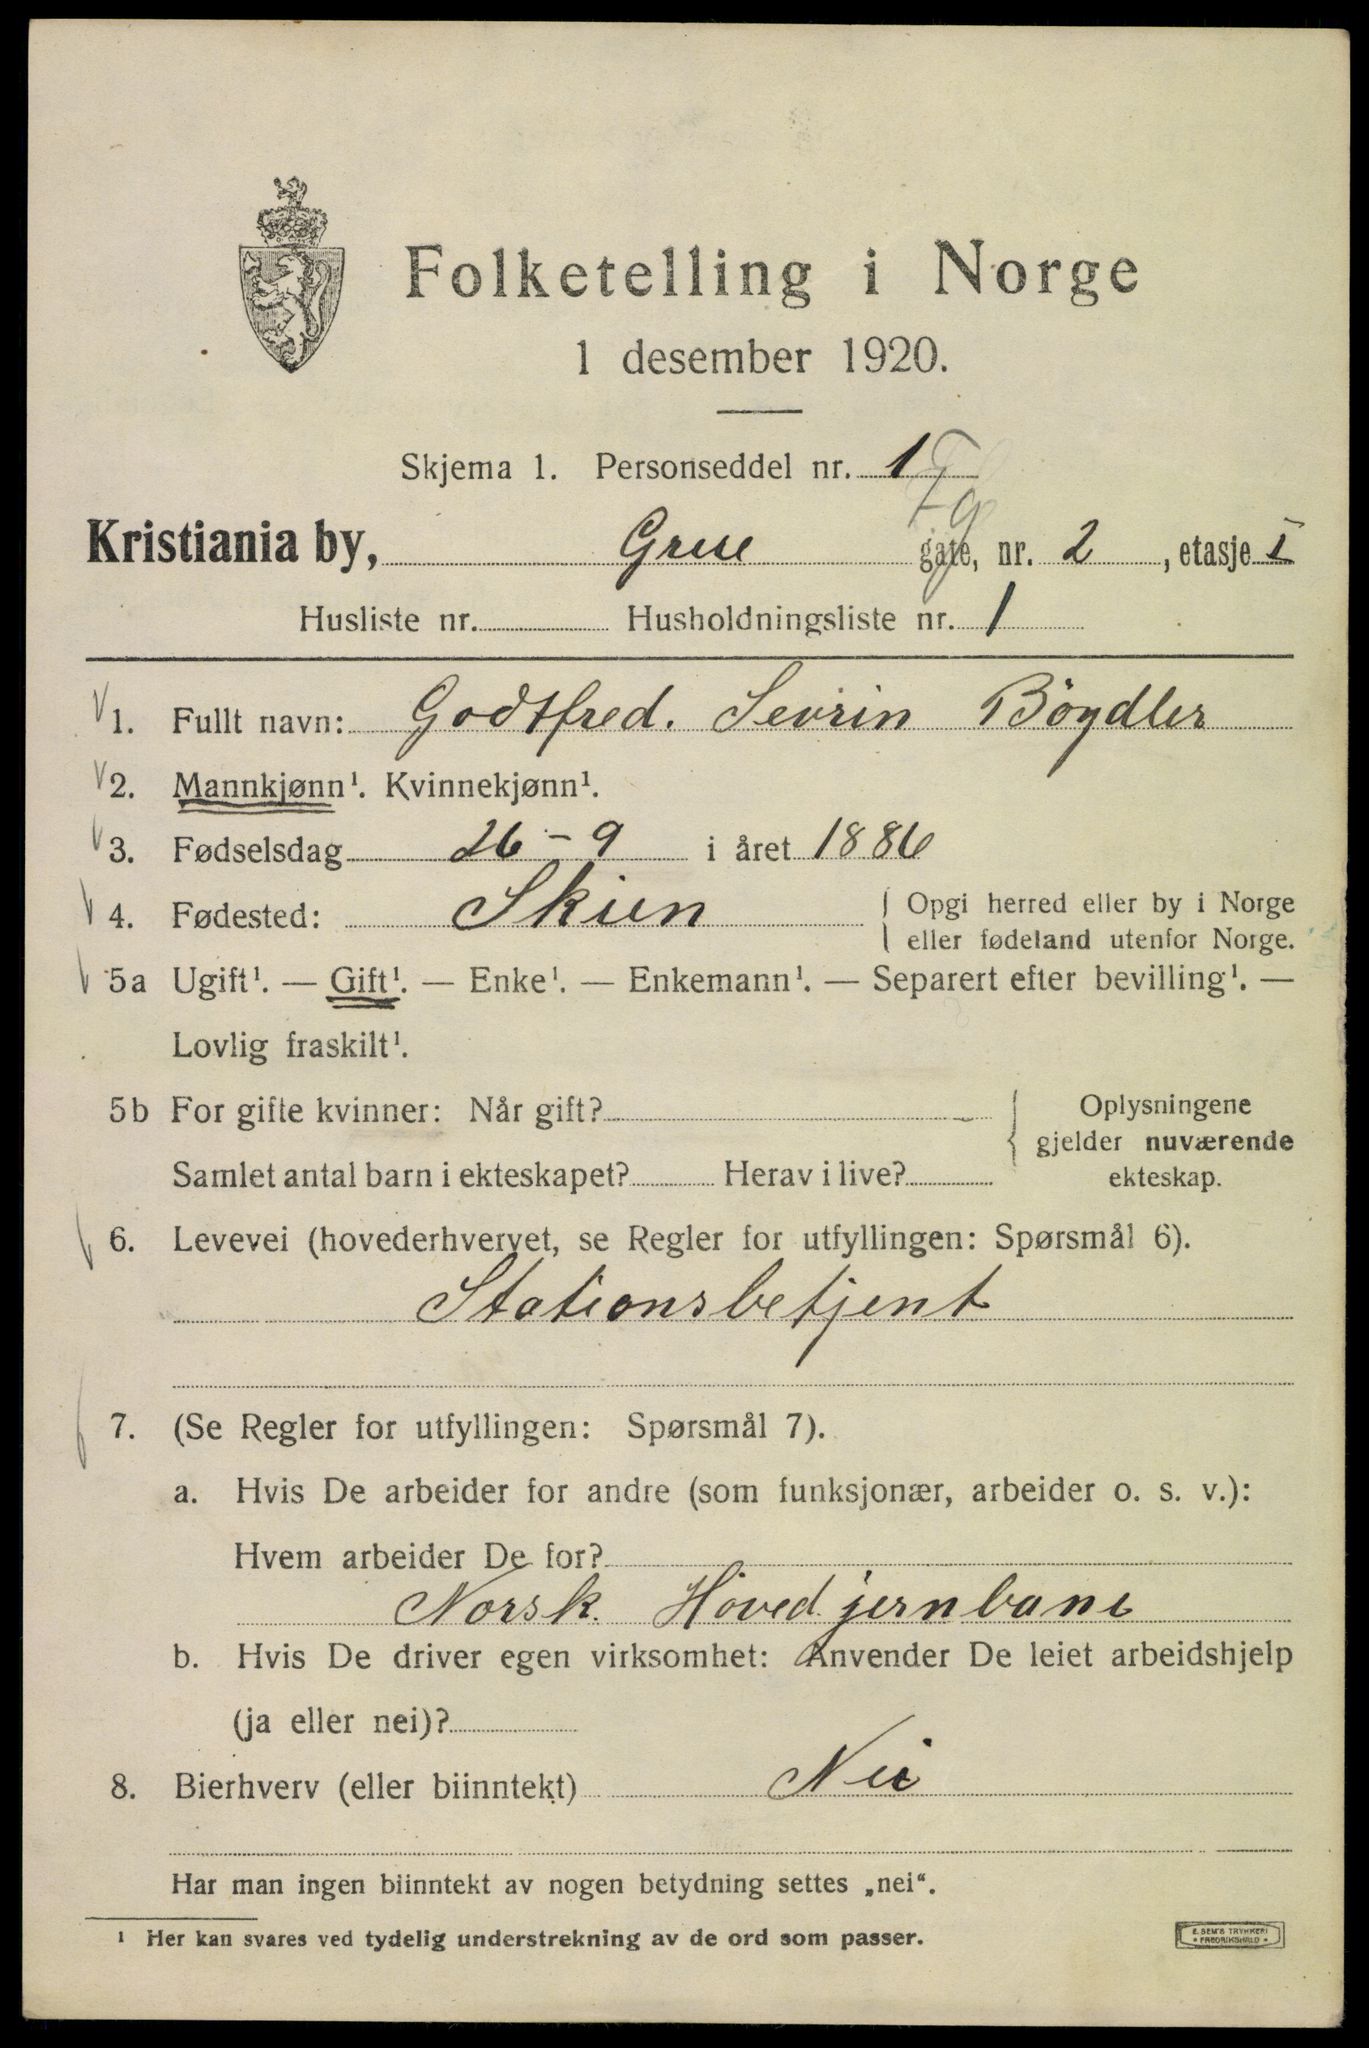 Folketelling i Norge
1 desember 1920.
Skjema 1. Personseddel nr. 1
Kristiania by, Grue gate, nr. 2, etasje I
Husliste nr. Husholdningsliste nr. 1
1. Fullt navn: Godtfred. Sevrin Böydler
2. Mannkjønn¹. Kvinnekjønn¹.
3. Fødselsdag 26 – 9 i året 1886
4. Fødested: Skien { Opgi herred eller by i Norge
eller fødeland utenfor Norge.
5a Ugift¹. — Gift¹. — Enke¹. — Enkemann¹. — Separert efter bevilling¹. —
Lovlig fraskilt¹.
5b For gifte kvinner: Når gift? { Oplysningene
gjelder nuværende
Samlet antal barn i ekteskapet? Herav i live? ekteskap.
6. Levevei (hovederhvervet, se Regler for utfyllingen: Spørsmål 6).
Stationsbetjent
7. (Se Regler for utfyllingen: Spørsmål 7).
a. Hvis De arbeider for andre (som funksjonær, arbeider o. s. v.):
Hvem arbeider De for?
Norsk. Hoved jernbane
b. Hvis De driver egen virksomhet: Anvender De leiet arbeidshjelp
(ja eller nei)?
8. Bierhverv (eller biinntekt) Nei
Har man ingen biinntekt av nogen betydning settes „nei“.
¹ Her kan svares ved tydelig understrekning av de ord som passer.
E. SEM'S TRYKKERI
* FREDRIKSHALD *